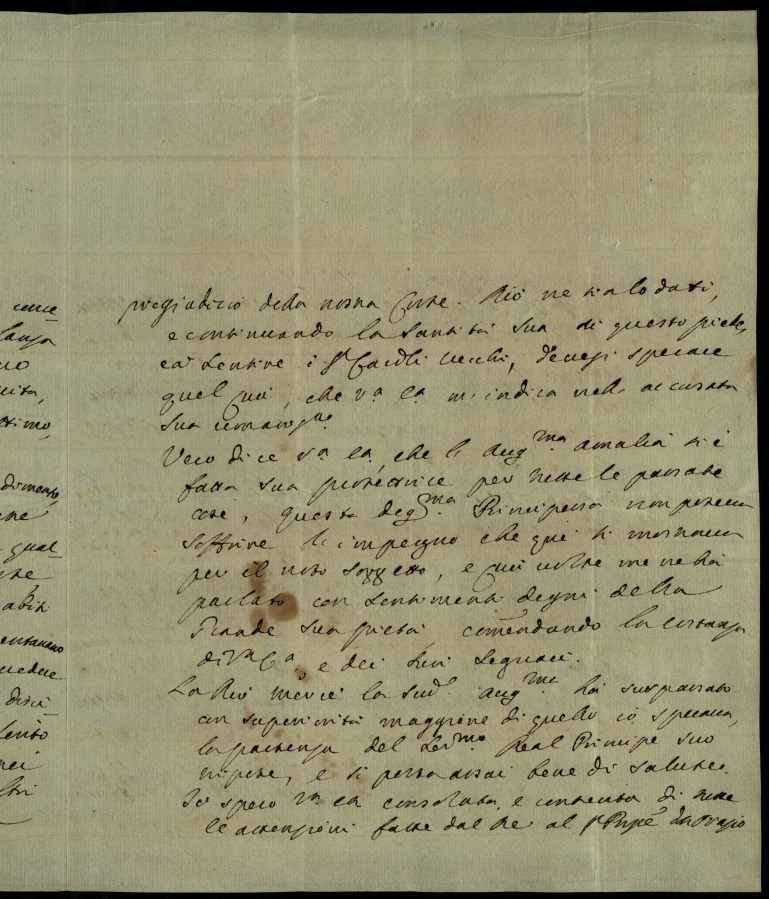 pregiudizio della nostra Corte. Dio ne sia lodato,
e continuando la Santità Sua di questo piede,
ed sentire i Sri Cardli vecchi, devesi sperare
quel più, che Va Ea m'indica nella accurata
sua umanissma.
Vero dice Va Ea, che la Augma Amalia si è
fatta sua protettrice per tutte le passate
cose, questa degma Principessa non poteva
soffrire l'impegno che qui si mostrava
per il noto soggetto, e più volte me ne ha
parlato con sentimenti degni della
Grande sua pietà, comendando la costanza
di Va Ea, e dei suoi seguaci.
La Dio mercè la suda Augma ha sorpassato
con superiorità maggiore di quello io sperava,
la partenza del Sermo Real Principe suo
nipote, e si porta assai bene di salute.
Io spero Va Ea consolata, e contenta di tutte
le attenzioni fatte dal Re al Sr Pnpe
cuno
vita,
ttimo,
dimento,
che
qual=
abiti
vedere
disci=
stri